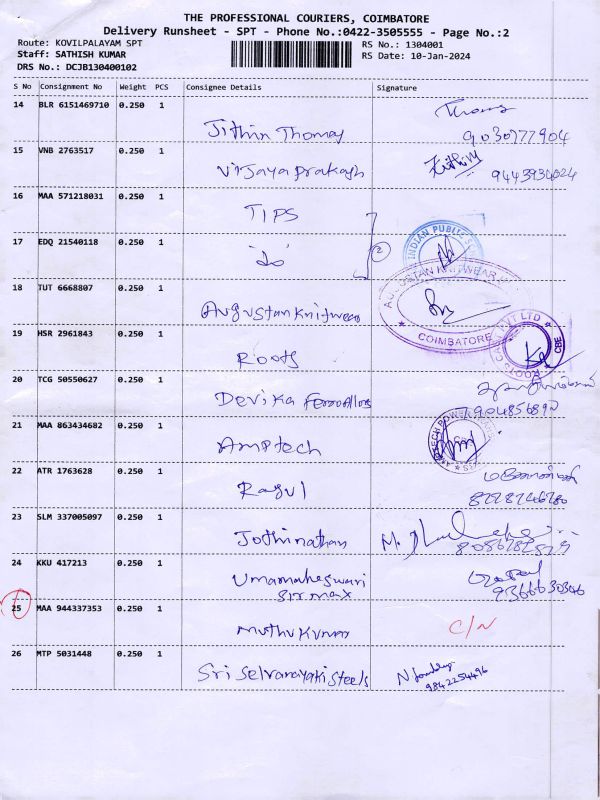 THE PROFESSIONAL COURIERS, COIMBATORE
Delivery Runsheet - SPT - Phone No.:0422-3505555 - Page No.:2
Route: KOVILPALAYAM SPT
RS No.: 1304001
Staff: SATHISH KUMAR
RS Date: 10-Jan-2024
DRS No.: DCJB130400102
S No Consignment No Weight PCS Consignee Details Signature
14 BLR 6151469710 0.250 1
Jithin Thomas 9030777904
15 VNB 2763517 0.250 1
Vijaya prakash 9443934024
16 MAA 571218031 0.250 1
TIPS
17 EDQ 21540118 0.250 1
"do" 2
INDIAN PUBLIC
18 TUT 6668807 0.250 1
Augustan Knitwear
AUGUSTAN KNITWEAR
COIMBATORE
19 HSR 2961843 0.250 1
Roots
ROOTS CBE
20 TCG 50550627 0.250 1
Devika Ferro Alloys
21 MAA 863434682 0.250 1
Amptech
22 ATR 1763628 0.250 1
Ragul
23 SLM 337005097 0.250 1
Jothinathan
24 KKU 417213 0.250 1
Umamaheswari
sirmax
25 MAA 944337353 0.250 1
muthu kumar C/N
26 MTP 5031448 0.250 1
Sri Selvanayaki Steels
9842254496